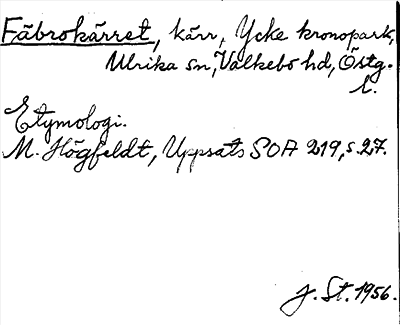 Fäbrokärret, kärr, Ycke kronopark,
Ulrika sn, Valkebo hd, Östg.
l.
Etymologi.
M. Högfeldt, Uppsats SOA 219, s. 27.
J. St. 1956.